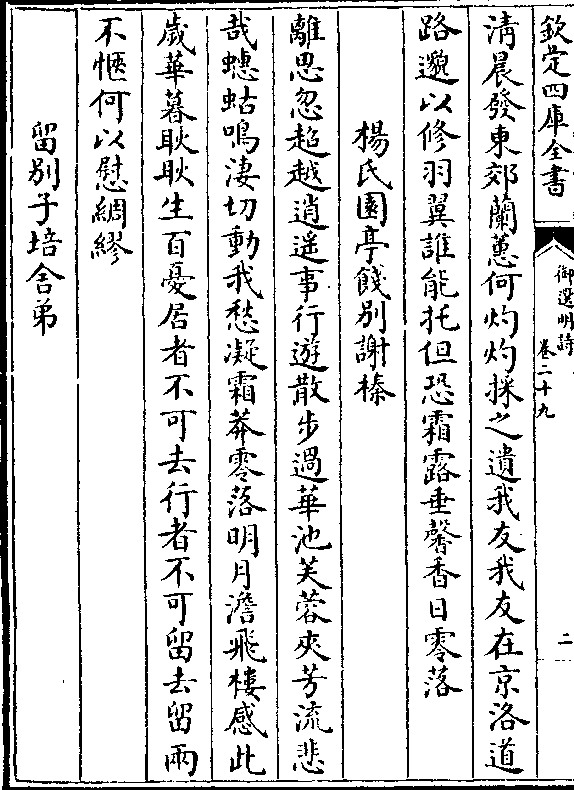 欽定四庫全書
御選明詩
卷二十九
二
清晨發東郊蘭蕙何灼灼採之遺我友我友在京洛道
路邈以修羽翼誰能托但恐霜露垂馨香日零落
楊氏園亭餞別謝榛
離思忽超越逍遥事行遊散步過華池芙蓉夾芳流悲
哉蟪蛄鳴淒切動我愁凝霜莽零落明月澹飛樓感此
歲華暮耿耿生百憂居者不可去行者不可留去留兩
不愜何以慰綢繆
留別子培舍弟